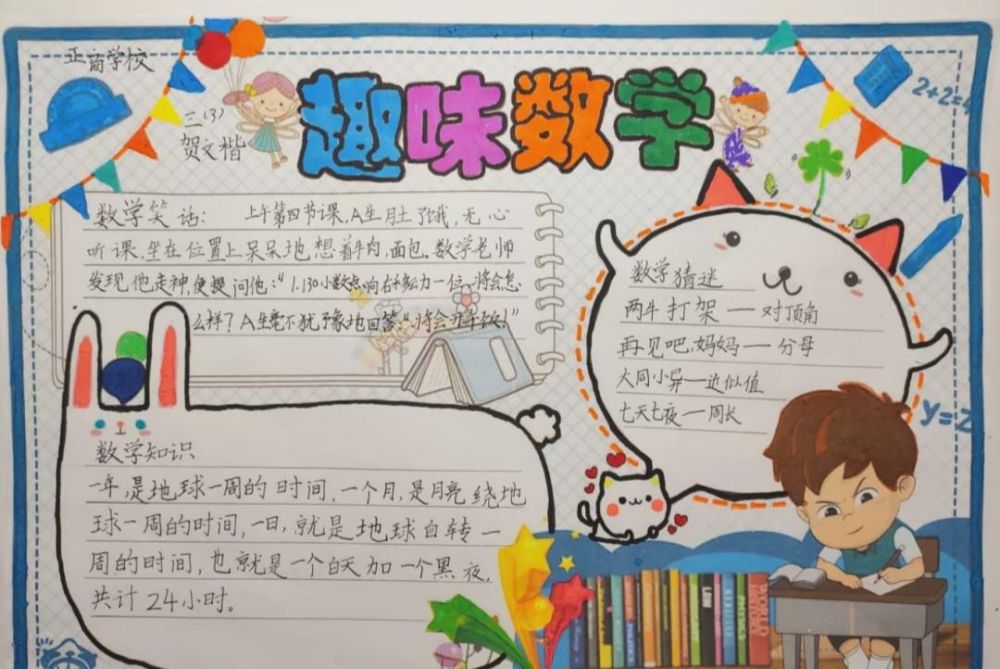 正商学校
三(3)
贺文楷
趣味数学
2+2=4
数学笑话： 上午第四节课，A生肚子饿，无心
听课，坐在位置上呆呆地想着牛肉，面包。数学老师
发现他走神，便提问他：“1.130小数点向右移动一位，将会怎
么样？A生毫不犹豫地回答“将会开午饭！”
数学猜迷
两牛打架——对顶角
再见吧，妈妈——分母
大同小异—近似值
七天七夜—周长
y=2
数学知识
一年，是地球一周的时间，一个月，是月亮绕地
球一周的时间，一日，就是地球自转一
周的时间，也就是一个白天加一个黑夜，
共计24小时。
LAW
PHYSICS
WORLD